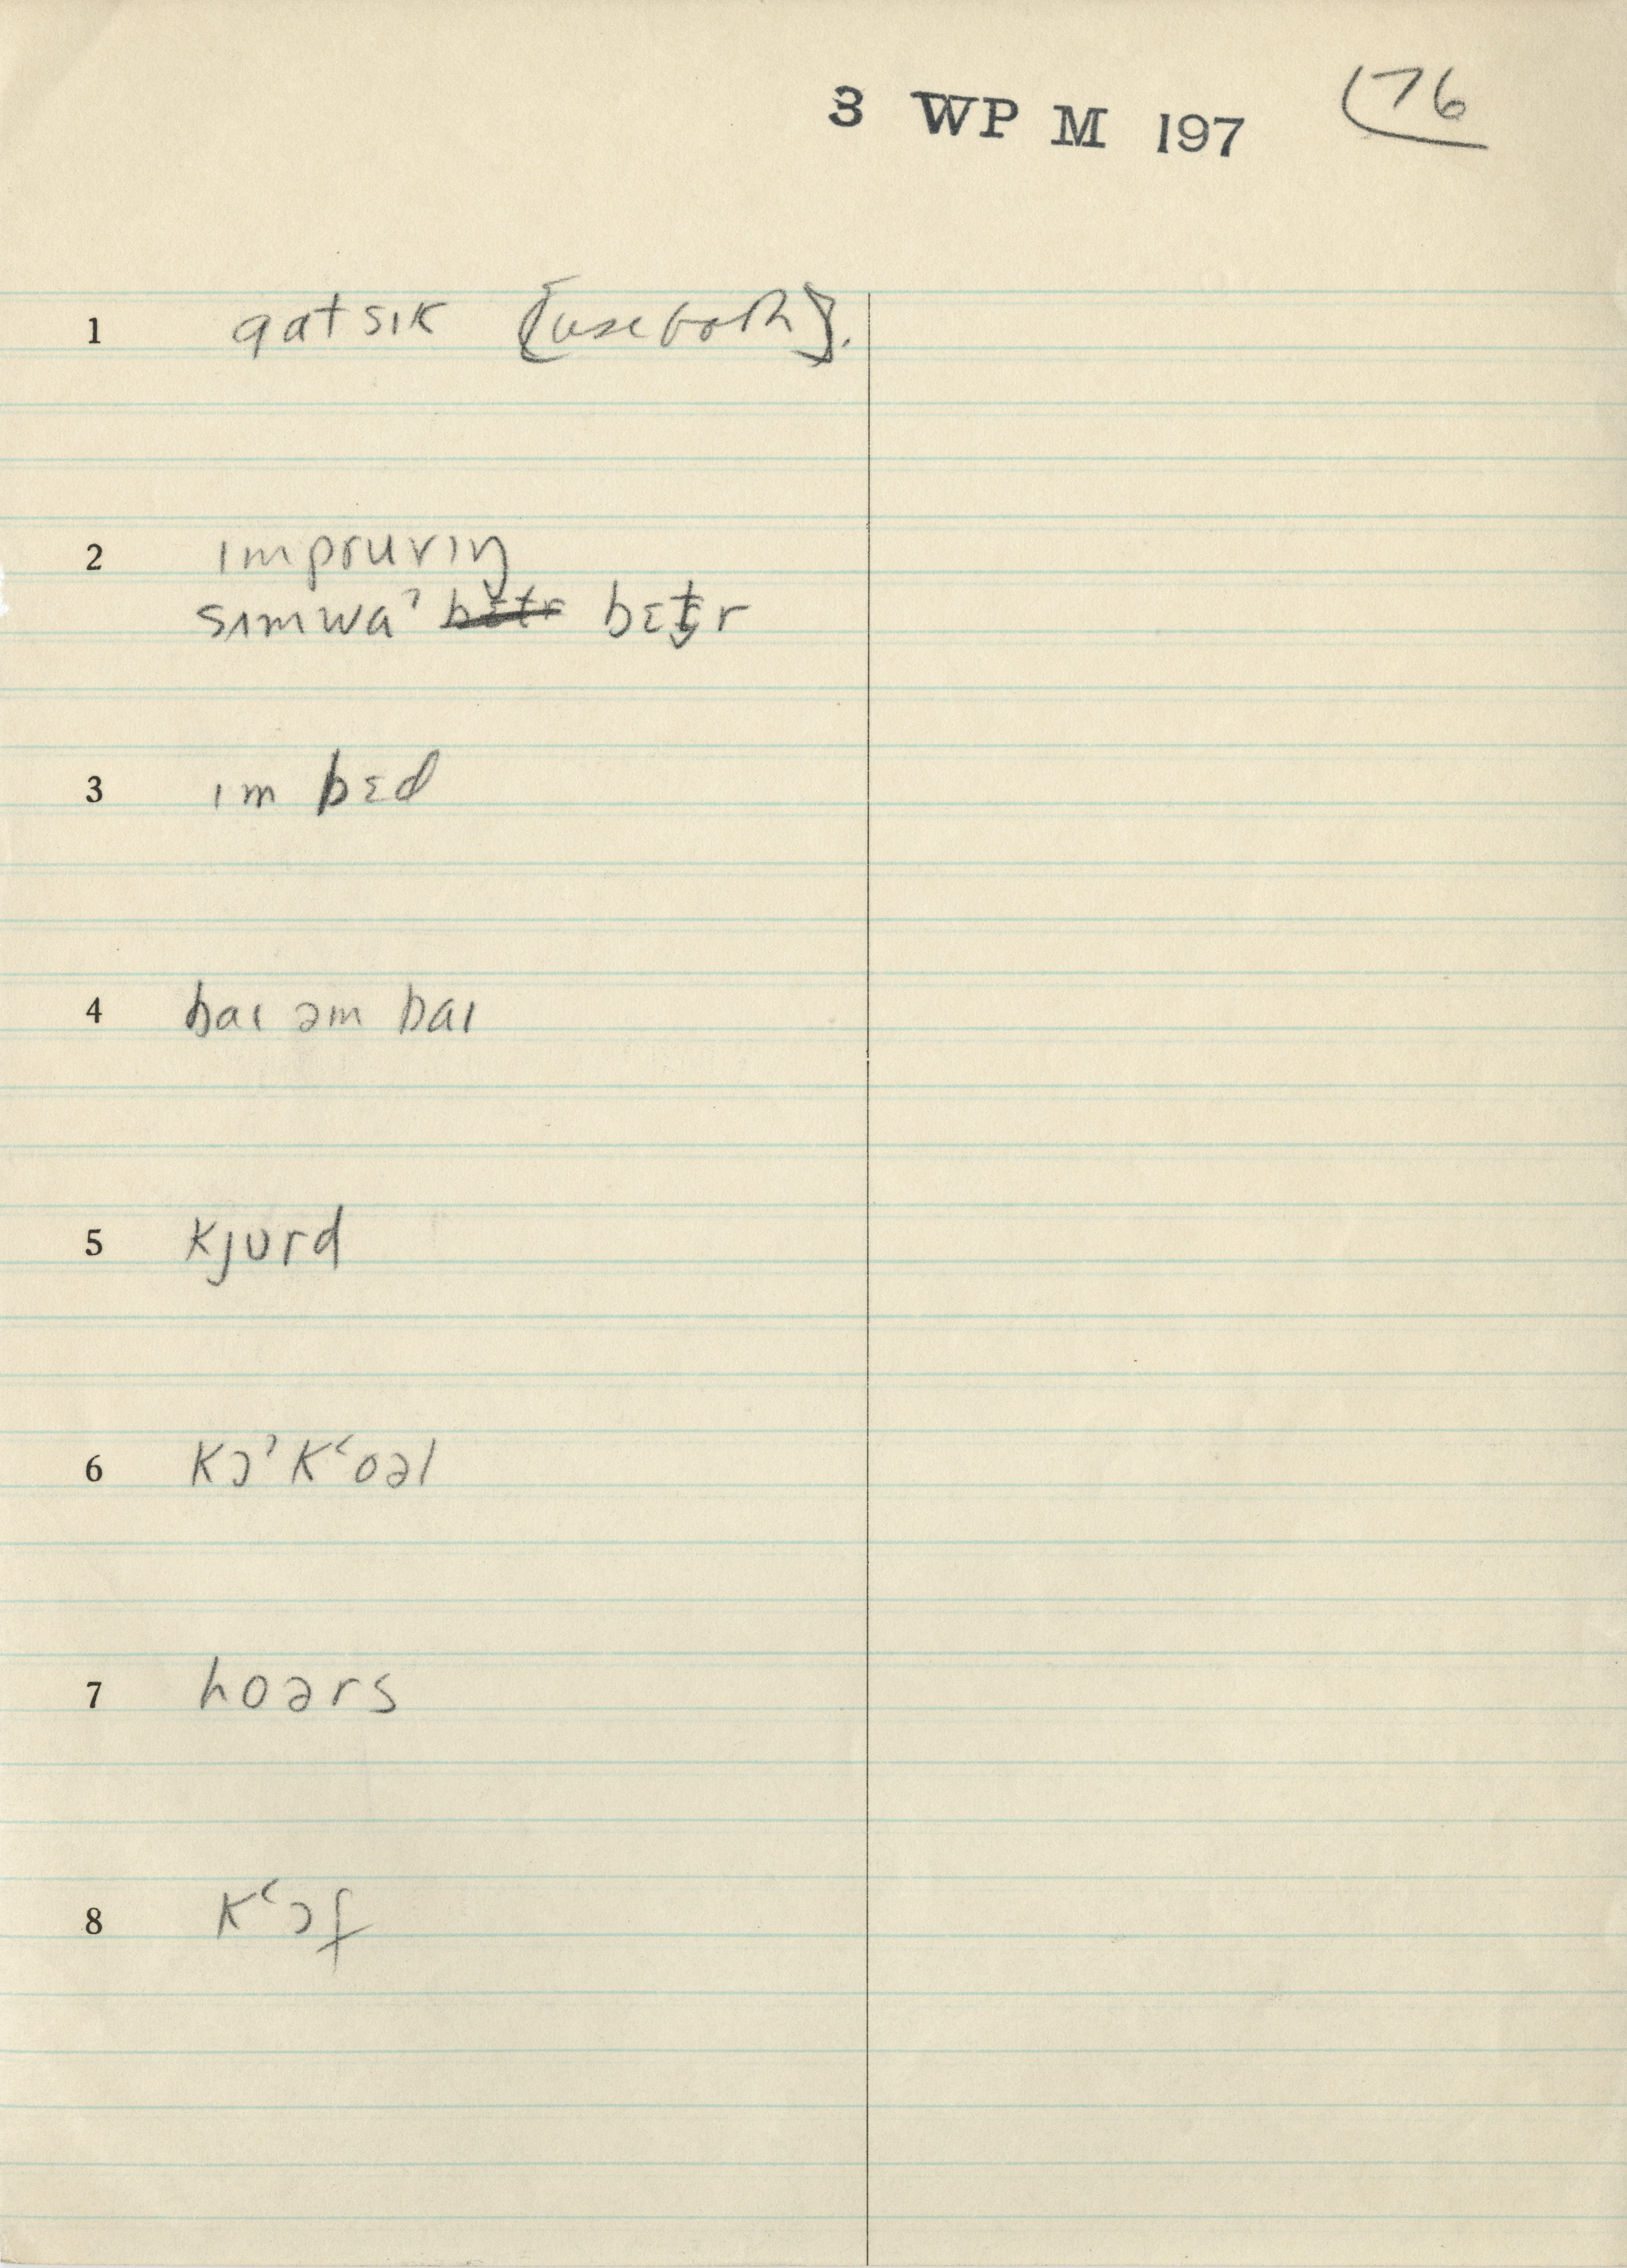 3 WP M 197 (76
1 gat sɪk [use both].
2 ɪmpruvɪŋ
sʌmwaˀ bɛtr bɛt̬r
3 ɪm bɛd
4 baɪ əm baɪ
5 kjurd
6 kɔˀkʻoəl
7 hoərs
8 kʻɔf